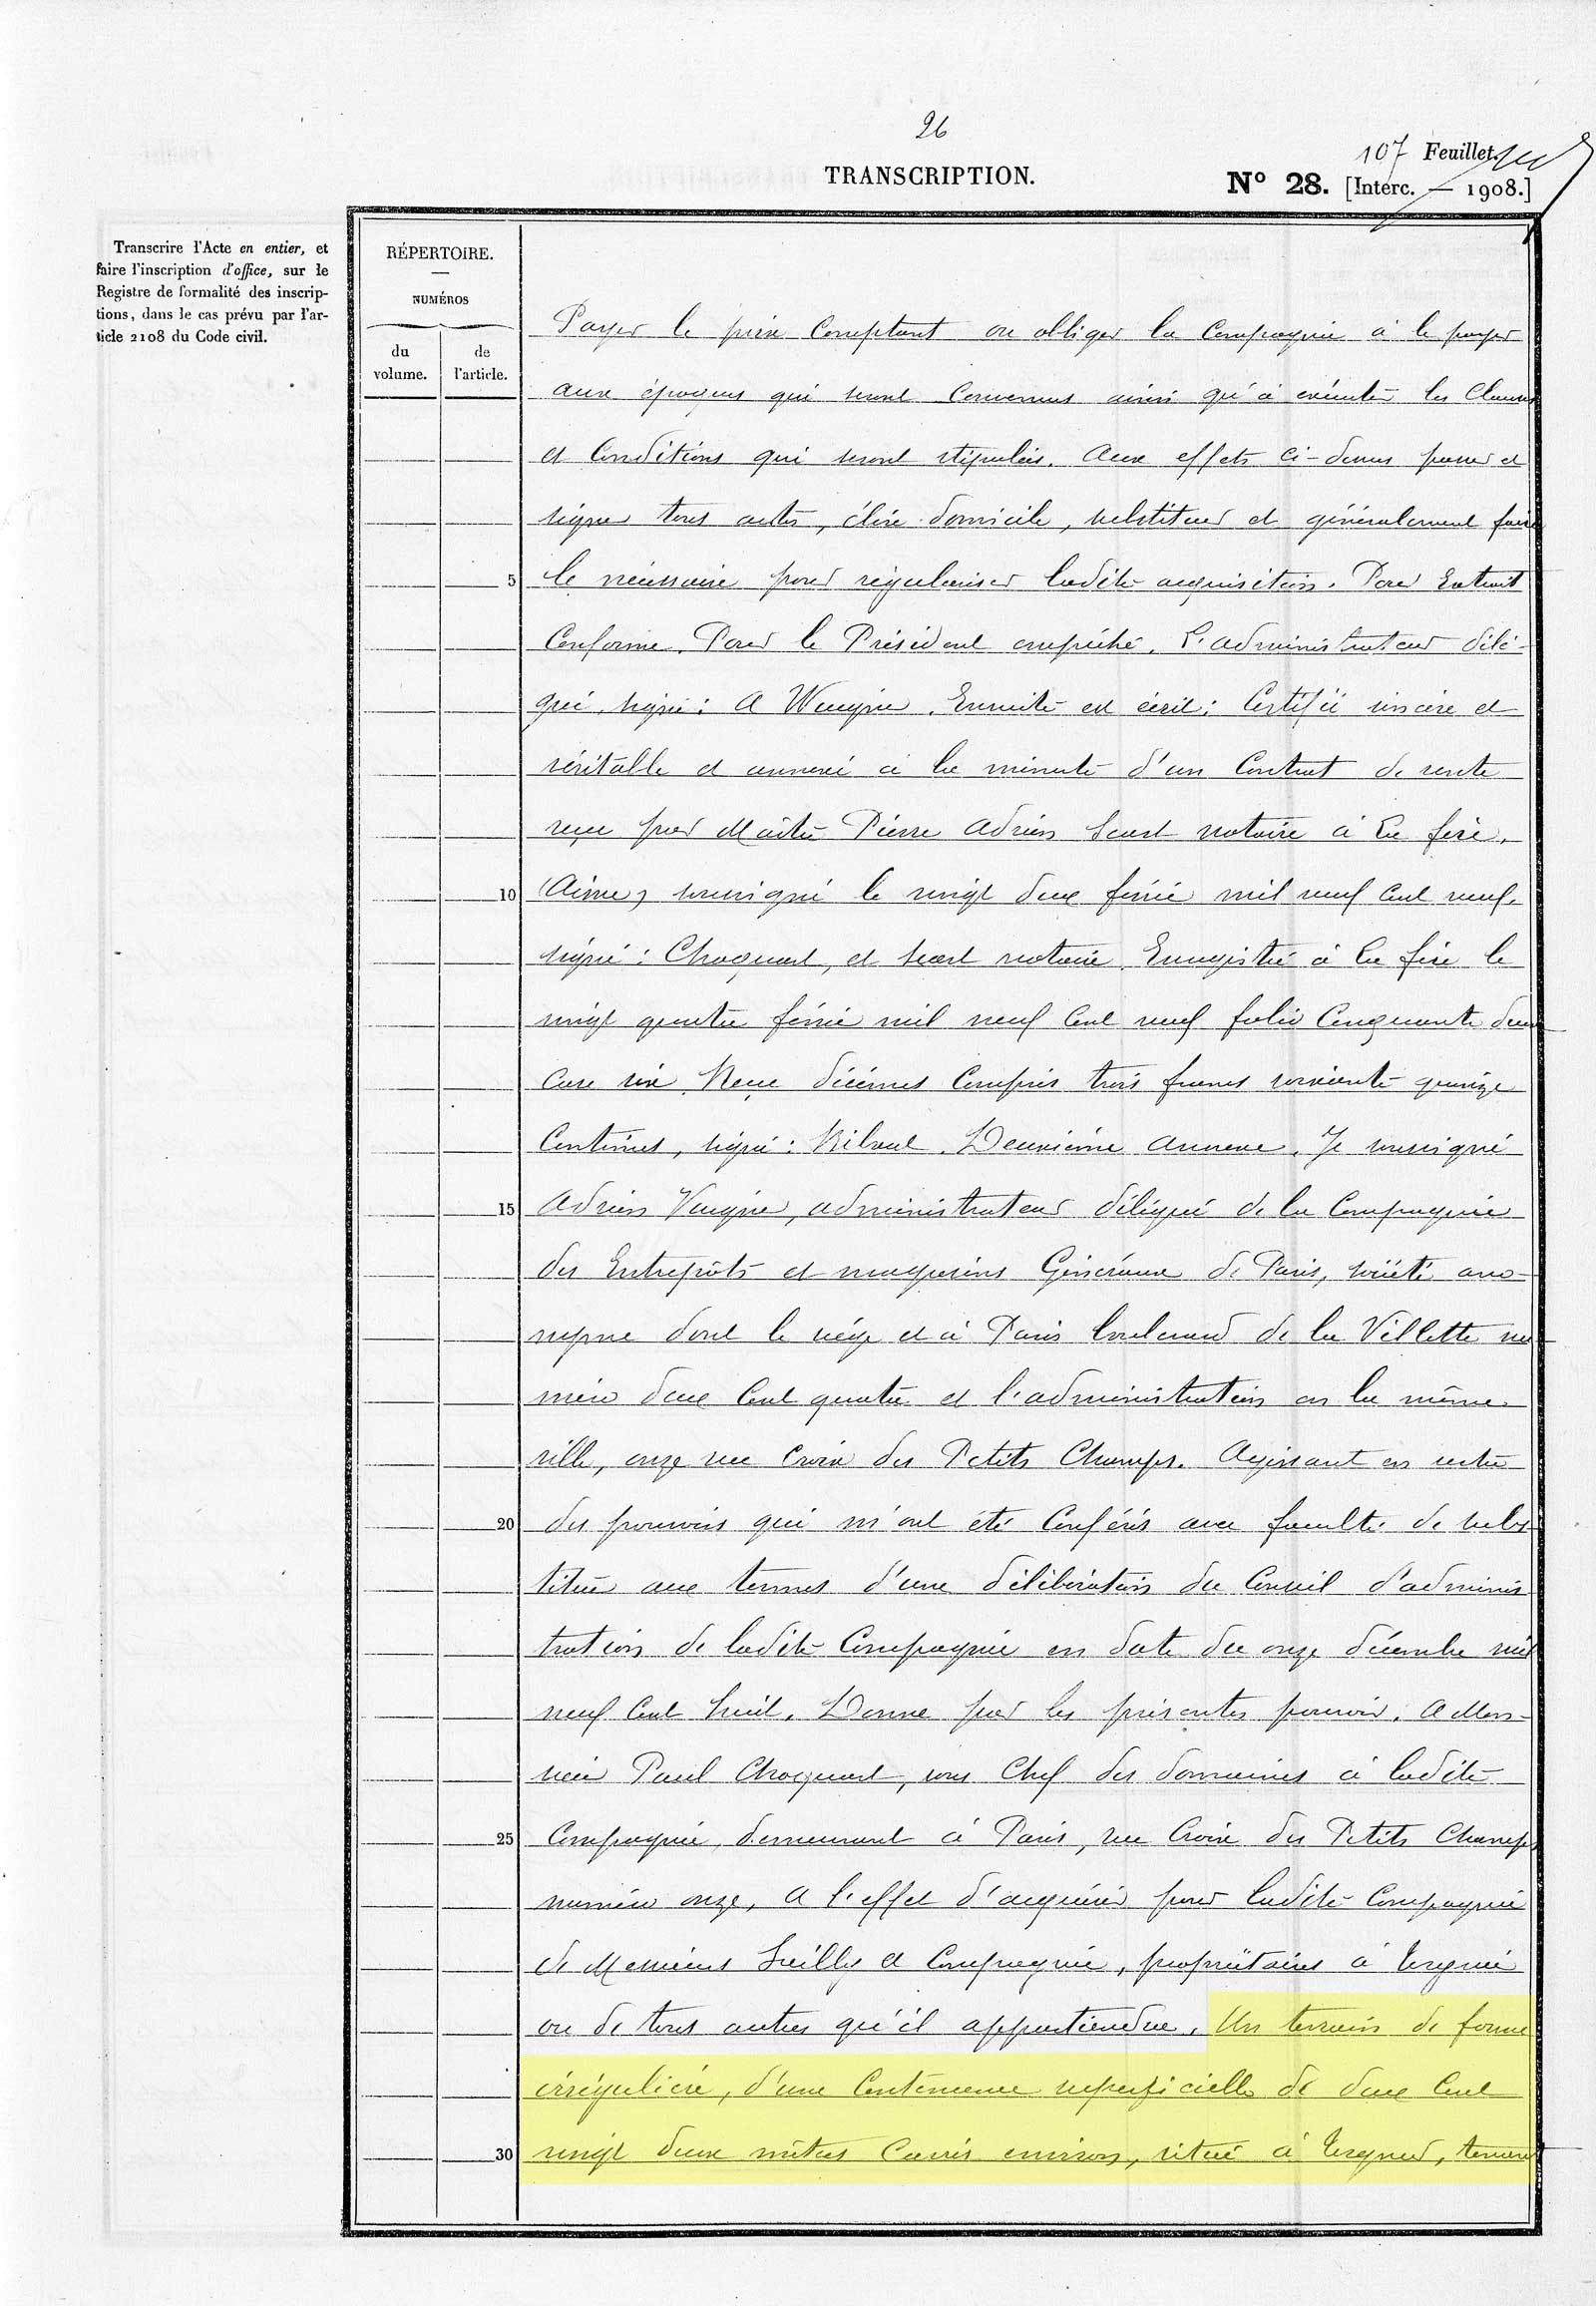 26
107 Feuillet.
TRANSCRIPTION.
N° 28. [Interc. — 1908.]
Transcrire l'Acte en entier, et
faire l'inscription d'office, sur le
Registre de formalité des inscrip-
tions, dans le cas prévu par l'ar-
ticle 2108 du Code civil.
RÉPERTOIRE.
NUMÉROS
du
volume.
de
l'article.
Payer le prix Comptant ou obliger la Compagnie à le payer
aux époques qui seront Convenues ainsi qu'à exécuter les Clauses
et Conditions qui seront stipulées. Aux effets ci-dessus passer et
signer tous actes, élire domicile, substituer et généralement faire
5 le nécessaire pour régulariser ladite acquisition. Pour Extrait
Conforme. Pour le Président empêché. L'administrateur délé-
gué, signé: A Vaugin. Ensuite est écrit: Certifié sincère et
véritable et annexé à la minute d'un Contrat de vente
reçu par Maître Pierre Adrien notaire à La fère,
10 (Aisne) soussigné le vingt deux février mil neuf cent neuf,
signé: Choquart, et notaire. Enregistré à La fère le
vingt quatre février mil neuf Cent neuf folio Cinquante deux
Case six. Reçu décimes Compris trois francs soixante quinze
Centimes, signé: Deuxième Annexe. Je soussigné
15 Adrien administrateur délégué de la Compagnie
des Entrepôts et magasins Généraux de Paris, société ano-
nyme dont le siège est à Paris boulevard de la Villette nu
méro deux Cent quatre et l'administration en la même
ville, onze rue Croix des Petits Champs. Agissant en vertu
20 des pouvoirs qui m'ont été Conférés avec faculté de subs-
tituer aux termes d'une délibération du Conseil d'adminis
tration de ladite Compagnie en date du onze décembre mil
neuf Cent huit. Donne par les présentes pouvoir. A Mon-
sieur Paul Choquart, sous Chef des domaines à ladite
25 Compagnie, demeurant à Paris, rue Croix des Petits Champs
numéro onze, A l'effet d'acquérir pour ladite Compagnie
de Messieurs et Compagnie, propriétaires à Tergnier
ou de tous autres qu'il appartiendra. Un terrain de forme
irrégulière, d'une Contenance superficielle de deux Cent
30 vingt deux mètres Carrés environ, situé à Tergnier, tenant